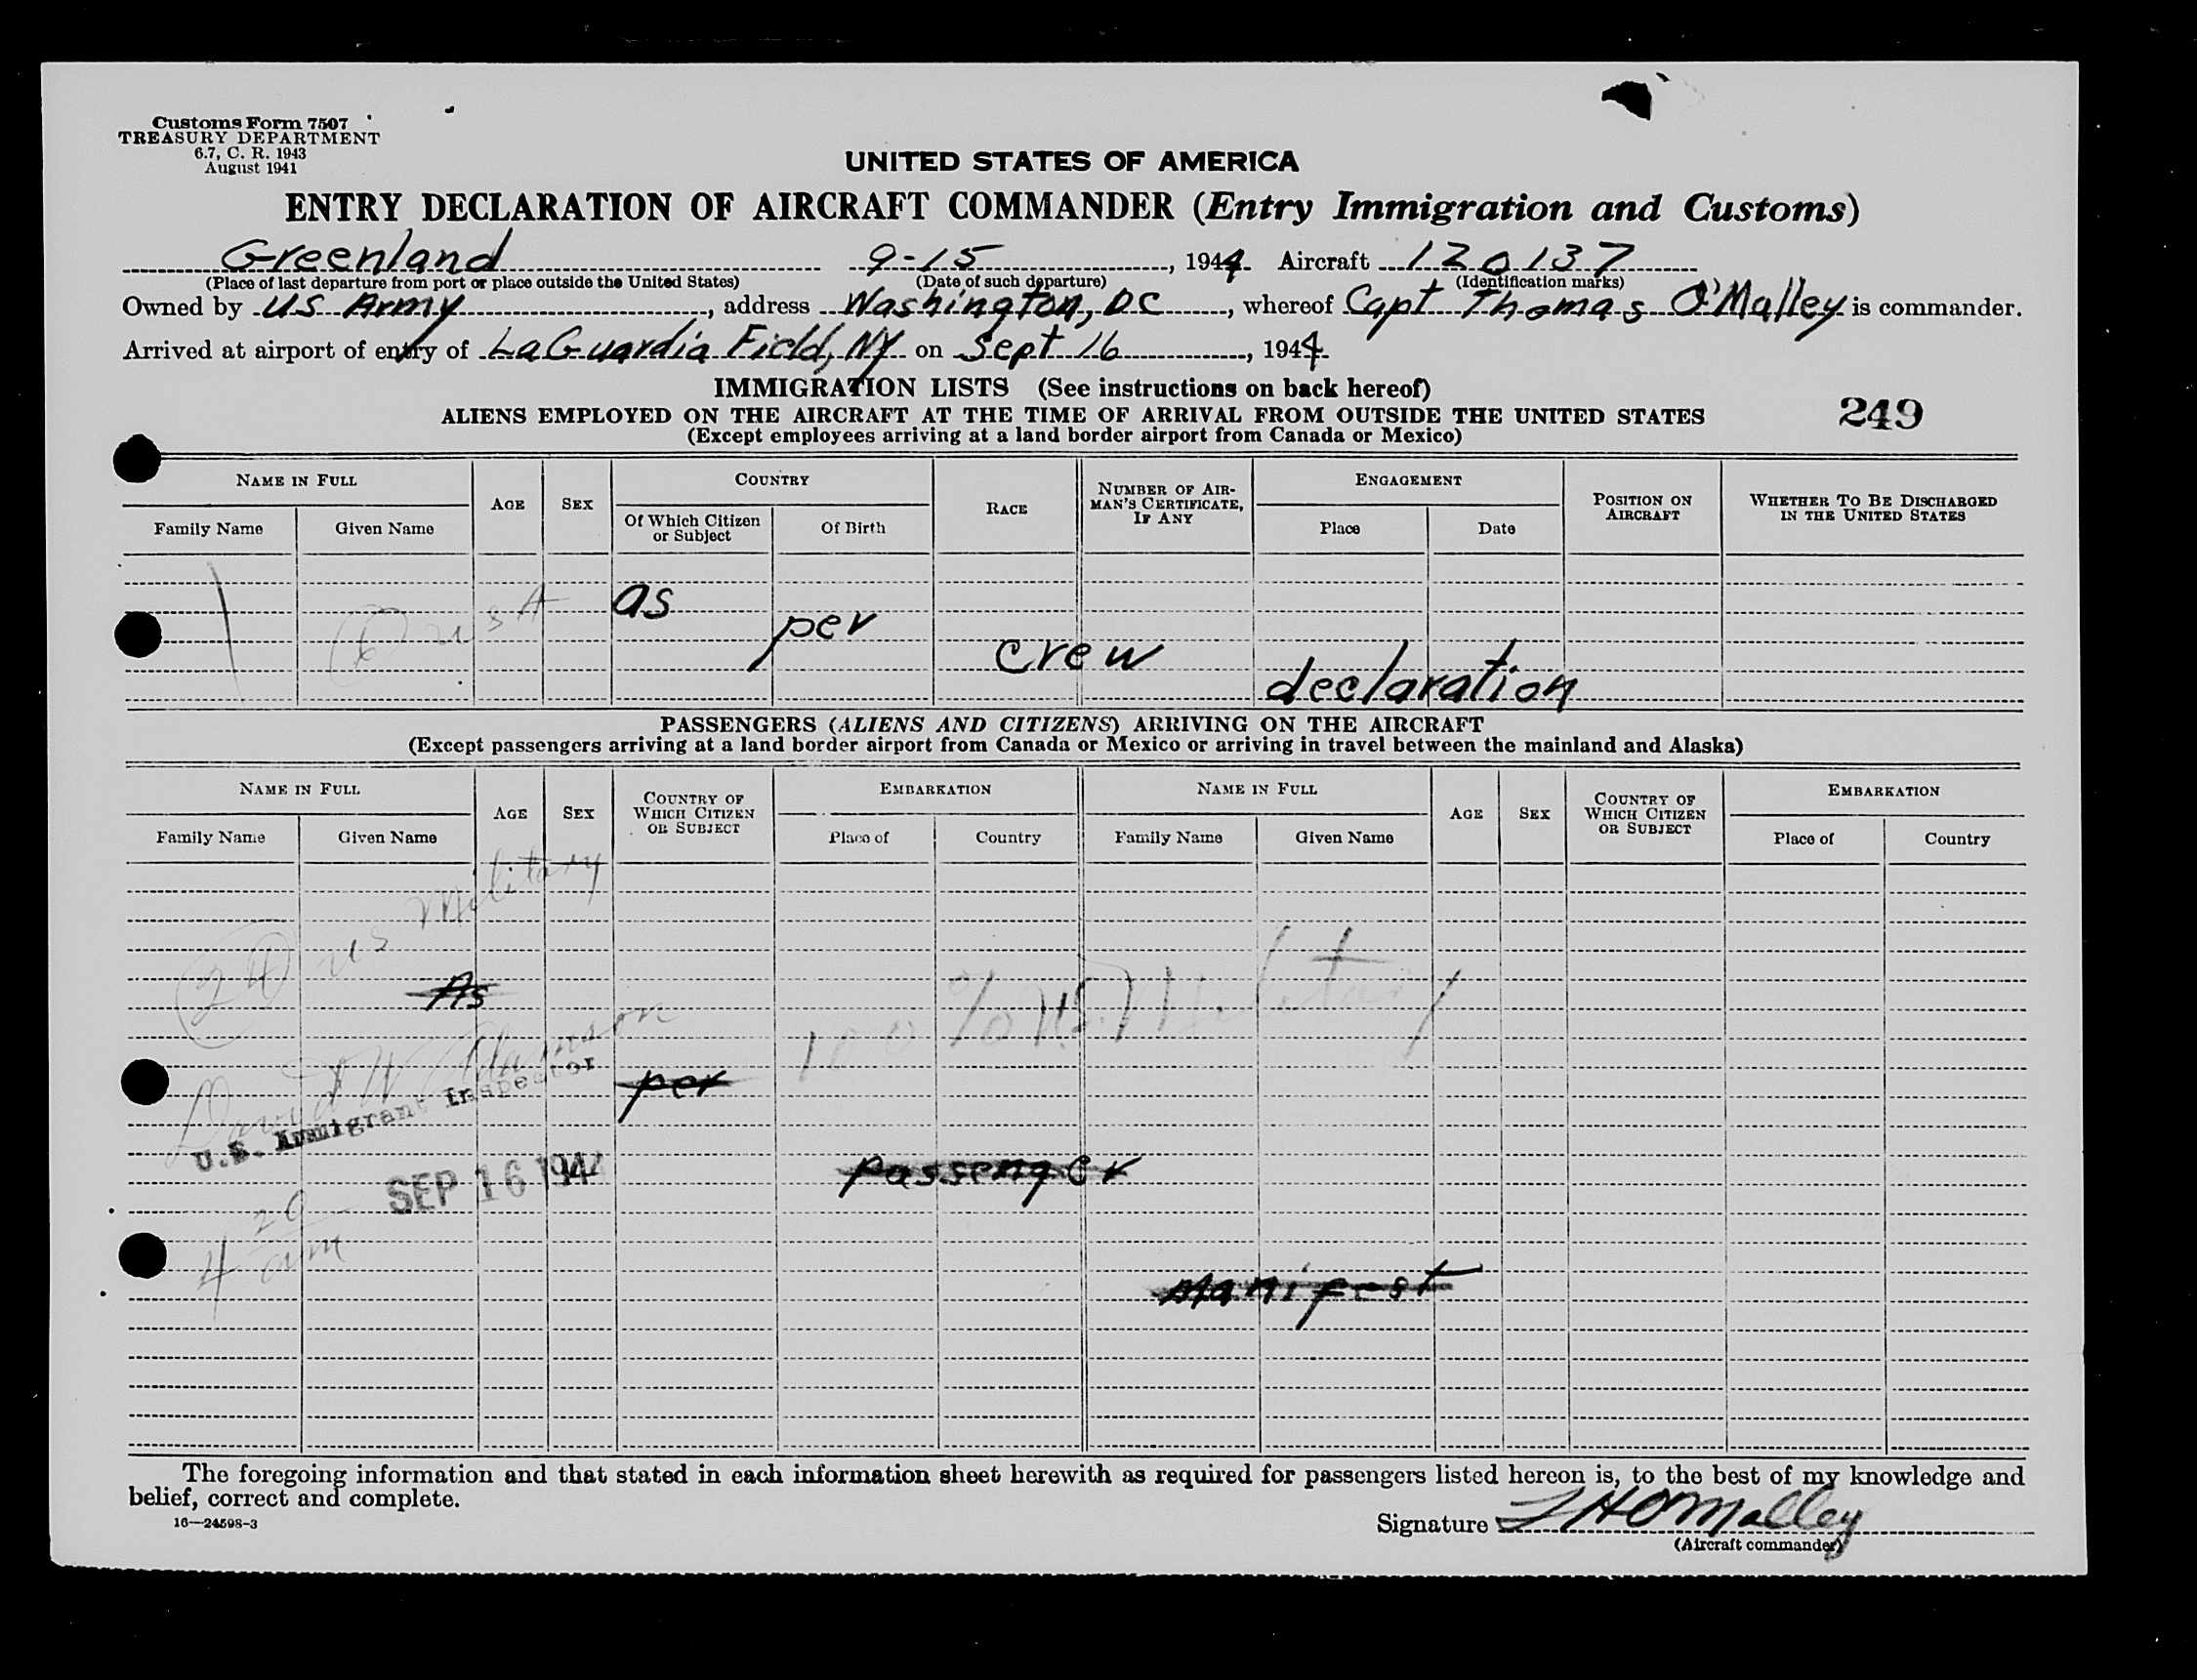 Customs Form 7507
TREASURY DEPARTMENT
6.7, C. R. 1943
August 1941
UNITED STATES OF AMERICA
ENTRY DECLARATION OF AIRCRAFT COMMANDER (Entry Immigration and Customs)
Greenland 9-15, 1944 Aircraft 120137
(Place of last departure from port or place outside the United States) (Date of such departure) (Identification marks)
Owned by US Army, address Washington, DC, whereof Capt Thomas O'Malley is commander.
Arrived at airport of entry of LaGuardia Field, NY on Sept 16, 1944
IMMIGRATION LISTS (See instructions on back hereof)
ALIENS EMPLOYED ON THE AIRCRAFT AT THE TIME OF ARRIVAL FROM OUTSIDE THE UNITED STATES
249
(Except employees arriving at a land border airport from Canada or Mexico)
NAME IN FULL AGE SEX COUNTRY RACE NUMBER OF AIRMAN'S CERTIFICATE, IF ANY ENGAGEMENT POSITION ON AIRCRAFT WHETHER TO BE DISCHARGED IN THE UNITED STATES
Family Name Given Name Of Which Citizen or Subject Of Birth Place Date
USA as
per
crew
declaration
PASSENGERS (ALIENS AND CITIZENS) ARRIVING ON THE AIRCRAFT
(Except passengers arriving at a land border airport from Canada or Mexico or arriving in travel between the mainland and Alaska)
NAME IN FULL AGE SEX COUNTRY OF WHICH CITIZEN OR SUBJECT EMBARKATION NAME IN FULL AGE SEX COUNTRY OF WHICH CITIZEN OR SUBJECT EMBARKATION
Family Name Given Name Place of Country Family Name Given Name Place of Country
US Military
As
100% US Military
David W
per
U.S. Immigrant Inspector
Passenger
SEP 16 1944
4 20 am
Manifest
The foregoing information and that stated in each information sheet herewith as required for passengers listed hereon is, to the best of my knowledge and
belief, correct and complete.
16—24598-3
Signature T H O'Malley
(Aircraft commander)